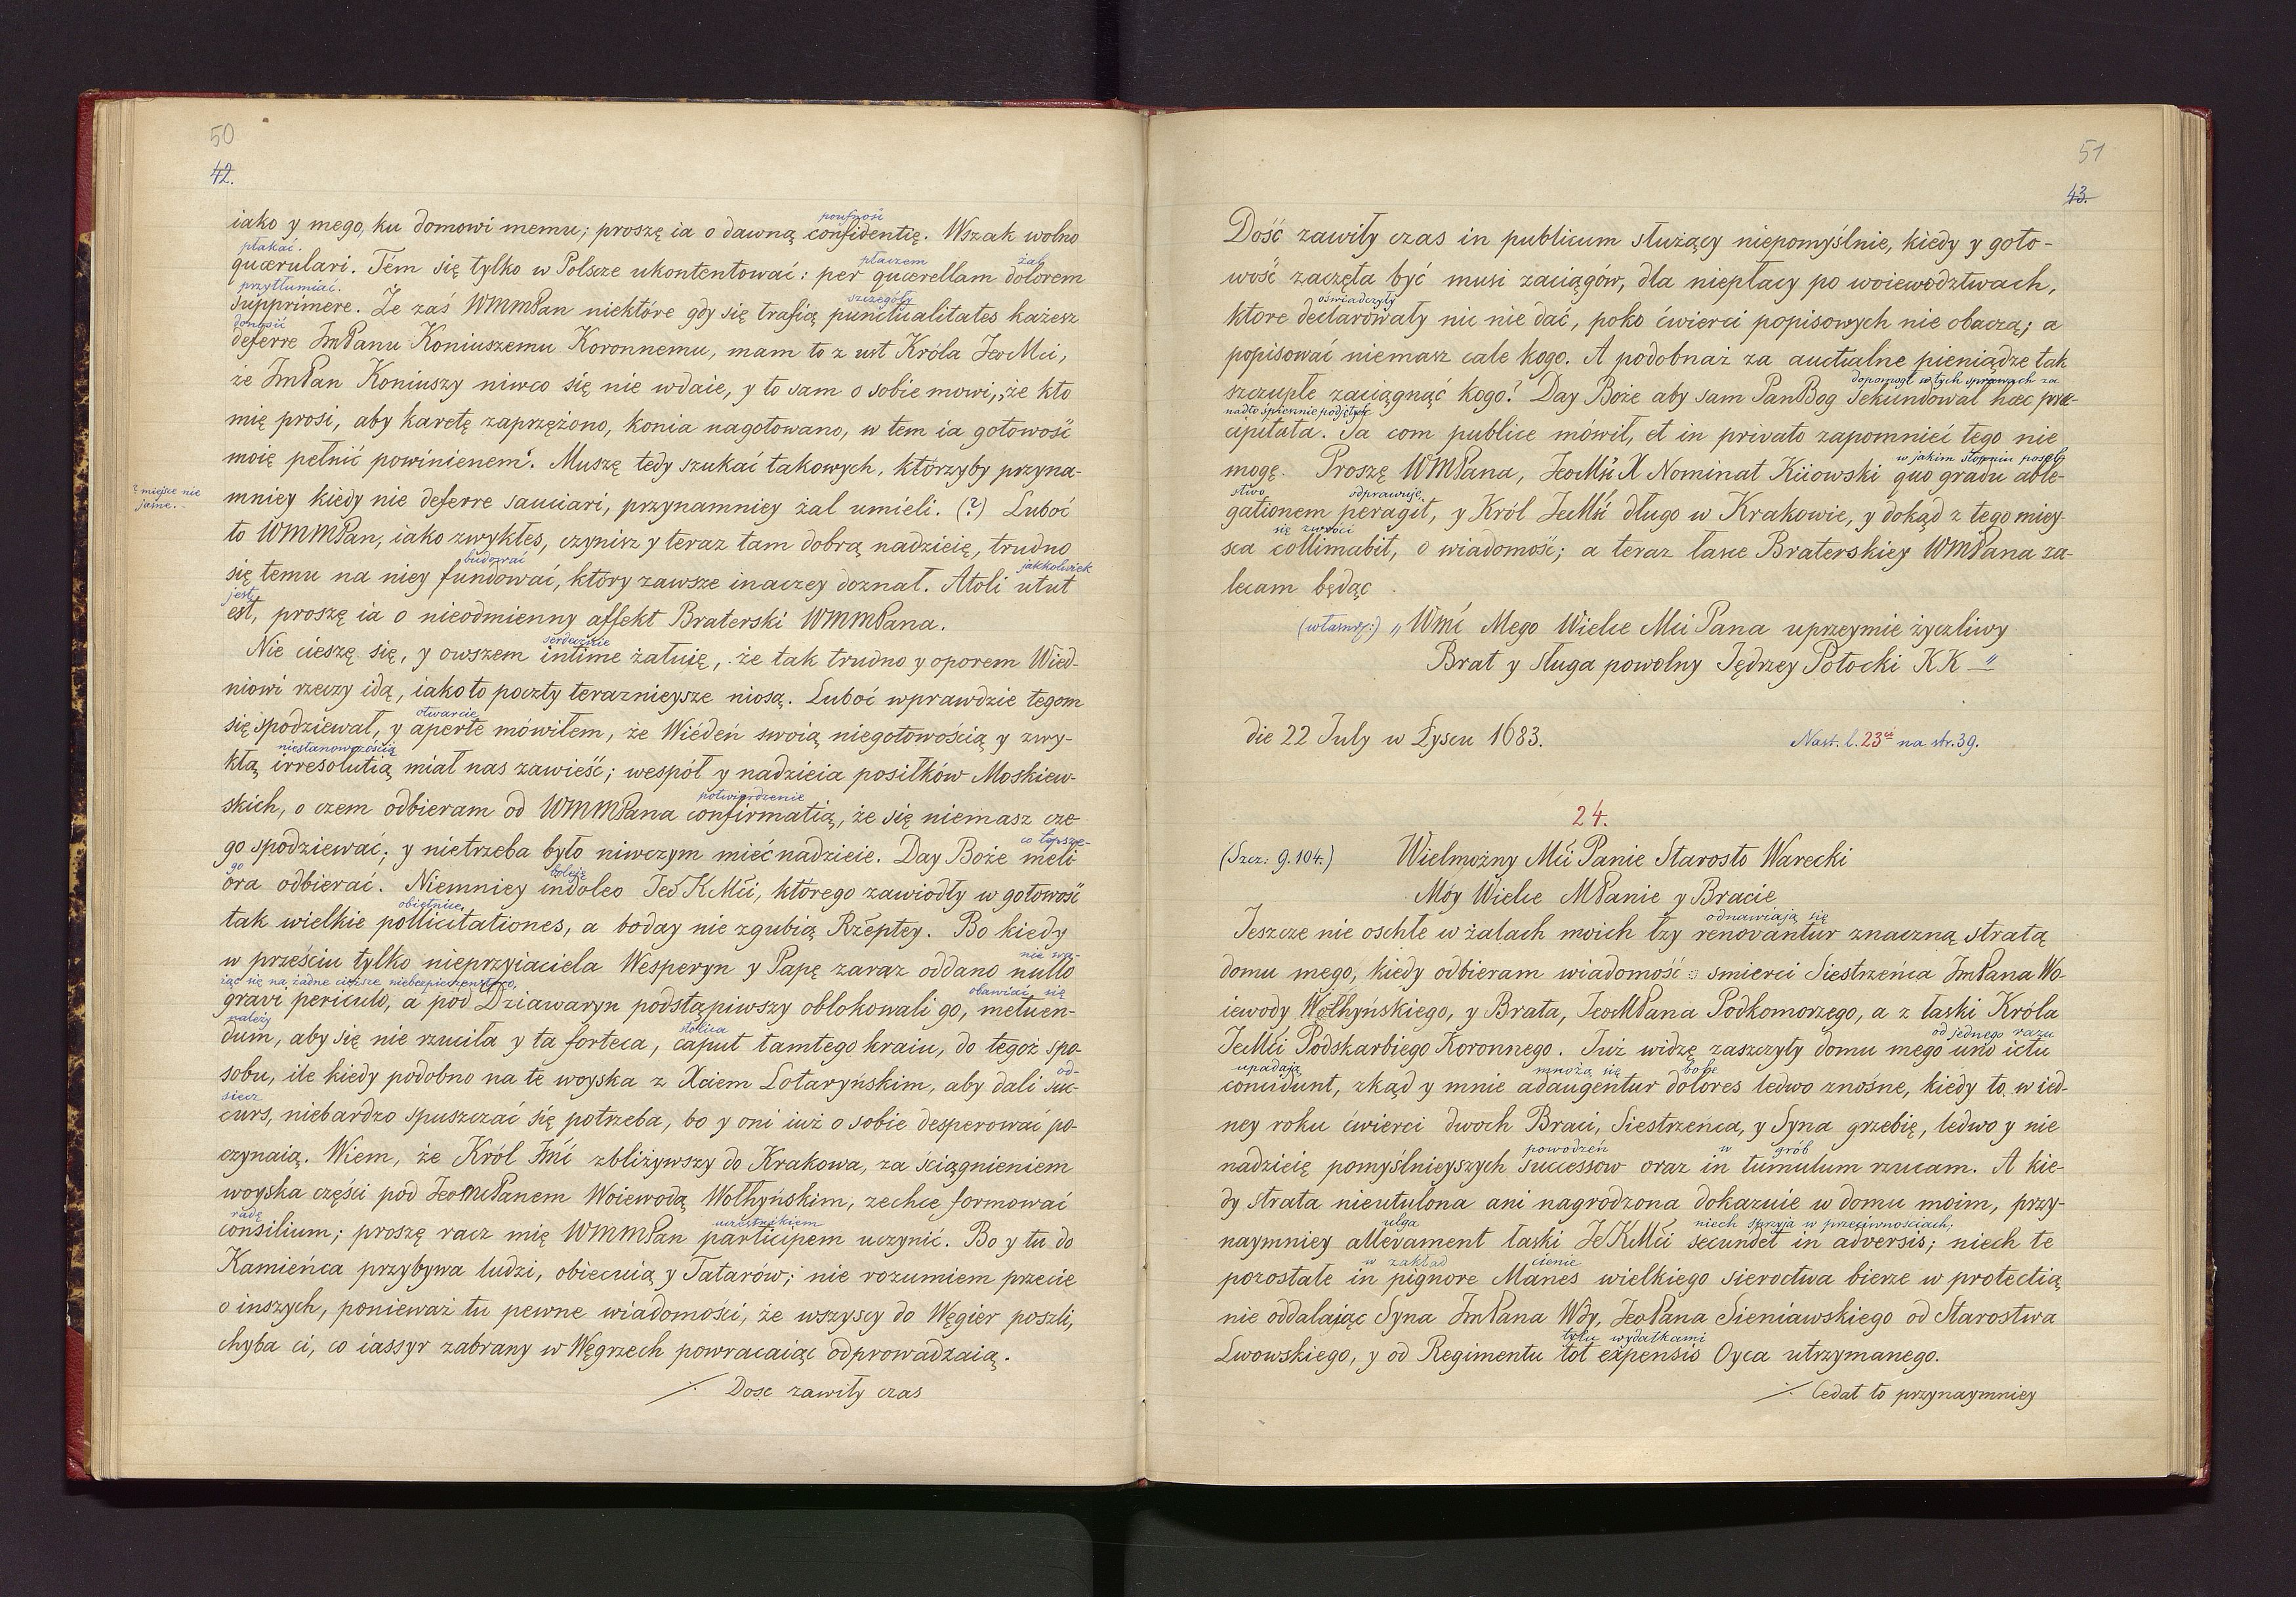 50
42.
poufność
iako y mego, ku domowi memu; proszę ia o dawną confidentię. Wszak wolno
płakać. płaczem żal
quærulari. Tém się tylko w Polszcze ukontentować: per quærellam dolorem
przytłumiać. szczegóły
supprimere. Że zaś WMMPan niektóre gdy się trafią punctualitates każesz
donosić
deferre JmPanu Koniuszemu Koronnemu, mam to z ust Króla JeoMci,
że JmPan Koniuszy niwco się nie wdaie, y to sam o sobie mowi, „że kto
mię prosi, aby karetę zaprzężono, konia nagotowano, w tem ia gotowość
moię pełnić powinienem“. Muszę tedy szukać takowych, którzyby przyna-
? miejsce nie jasne. -
mniey kiedy nie deferre sauciari, przynamniey żal umieli. (?) Luboć
to WMMPan, iako zwykłeś, czynisz y teraz tam dobrą nadzieię, trudno
budować jakkolwiek
się temu na niey fundować, który zawsze inaczey doznał. Atoli utut
jest
est, proszę ia o nieodmienny affekt Braterski WMMPana.
serdecznie
Nie cieszę się, y owszem intime żałuię, że tak trudno y oporem Wied-
niowi rzeczy idą, iako to poczty teraznieysze niosą. Luboć wprawdzie tegom
otwarcie
się spodziewał, y aperte mówiłem, że Wiédeń swoią niegotowością y zwy-
niestanowczością
kłą irresolutią miał nas zawieść; wespół y nadzieia posiłków Moskiew-
potwierdzenie
skich, o czem odbieram od WMMPana confirmatią, że się niemasz cze
co lepsze-
go spodziewać; y nietrzeba było niwczym mieć nadzieie. Day Boże meli
go boleję
ora odbierać. Niemniey indoleo Jeo KMci, którego zawiodły w gotowość
obietnice
tak wielkie pollicitationes, a boday nie zgubią Rzeptey. Bo kiedy
nie wa-
w prześciu tylko nieprzyiaciela Wesperyn y Papę zaraz oddano nullo
żąc się na żadne cięższe niebezpieczeństwo, obawiać się
gravi periculo, a pód Dziawaryn podstąpiwszy oblokowali go, metuen-
należy stolica
dum, aby się nie rzuciła y ta forteca, caput tamtego kraiu, do tegoż spo-
od-
sobu, ile kiedy podobno na te woyska z Xciem Lotaryńskim, aby dali suc-
siecz
curs, niebardzo spuszczać się potrzeba, bo y oni iuż o sobie desperować po-
czynaią. Wiem, że Król Jmć zbliżywszy do Krakowa, za ściągnieniem
woyska części pod JeoMcPanem Woiewodą Wołhyńskim, zechce formować
radę uczestnikiem
consilium; proszę racz mię WMMPan participem uczynić. Bo y tu do
Kamieńca przybywa ludzi, obiecuią y Tatarów; nie rozumiem przecie
o inszych, ponieważ tu pewne wiadomości, że wszyscy do Węgier poszli,
chyba ci, co iassyr zabrany w Węgrzech powracaiąc odprowadzaią.
./. Dosc zawiły czas
51
43.
Dość zawiły czas in publicum służący niepomyślnie, kiedy y goto-
wość zaczęta być musi zaciągów, dla niepłacy po woiewodztwach,
oświadczyły
ktore declarowały nic nie dać, poko ćwierci popisowych nie obaczą; a
popisować niemasz cale kogo. A podobnaż za auctualne pieniądze tak
dopomógł w tych sprawach za
szczupłe zaciągnąć kogo? Day Boże aby sam PanBog sekundował hæc præ-
nadto śpiesznie podjętych
cipitata. Ja com publice mówił, et in privato zapomnieć tego nie
w jakim stopniu posel-
mogę. Proszę WMPana, JeoMść X Nominat Kiiowski quo gradu able-
stwo odprawuje
gationem peragit, y Król JeMść długo w Krakowie, y dokąd z tego miey-
się zwróci
sca collimabit, o wiadomość; a teraz łasce Braterskiey WMPana za-
lecam będąc
(własnor:) „Wmć Mego Wielce Mci Pana uprzeymie życzliwy
Brat y sługa powolny Jędrzey Potocki KK - “
die 22 July w Łyscu 1683.
Nast. l. 23ci na str. 39.
24.
(Szcz: 9. 104.) Wielmożny Mći Panie Starosto Warecki
Móy Wielce MPanie y Bracie
odnawiają się
Jeszcze nie oschłe w żalach moich łzy renovantur znaczną stratą
domu mego, kiedy odbieram wiadomość o smierci Siestrzeńca JmPana Wo-
iewody Wołhyńskiego, y Brata, JeoMPana Podkomorzego, a z łaski Króla
od jednego razu
JeMći Podskarbiego Koronnego. Już widzę zaszczyty domu mego uno ictu
upadają mnożą się bole
concidunt, zkąd y mnie adaugentur dolores ledwo znośne, kiedy to w ied-
ney roku ćwierci dwoch Braci, Siestrzeńca, y Syna grzebię, ledwo y nie
powodzeń w grób
nadzieię pomyślnieyszych successow oraz in tumulum rzucam. A kie-
dy strata nieutulona ani nagrodzona dokazuie w domu moim, przy-
ulga niech sprzyja w przeciwnościach,
naymniey allevament łaski JeKMći secundet in adversis; niech te
w zakład cienie
pozostałe in pignore Manes wielkiego sieroctwa bierze w protectią
nie oddalając Syna JmPana Wdy, JeoPana Sieniawskiego od Starostwa
tylu wydatkami
Lwowskiego, y od Regimentu tot expensis Oyca utrzymanego.
./. Cedat to przynaymniey